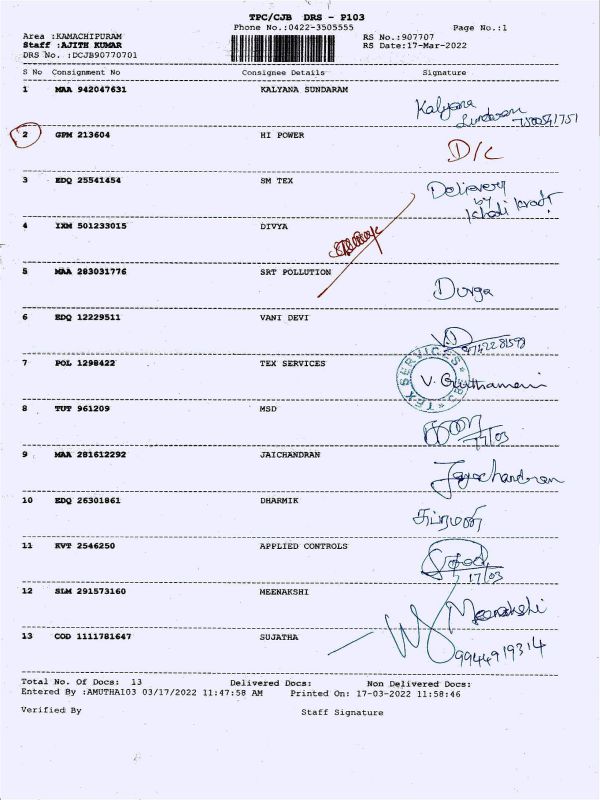 TPC/CJB DRS - P103
Phone No.:0422-3505555 Page No.:1
Area :KAMACHIPURAM RS No.:907707
Staff :AJITH KUMAR RS Date:17-Mar-2022
DRS No. :DCJB90770701
S No Consignment No Consignee Details Signature
1 MAA 942047631 KALYANA SUNDARAM
Kalyana
2 GPM 213604 HI POWER
D/C
3 EDQ 25541454 SM TEX
Delievery
by
4 IXM 501233015 DIVYA
5 MAA 283031776 SRT POLLUTION
Durga
6 EDQ 12229511 VANI DEVI
7 POL 1298422 TEX SERVICES
TEX SERVICES
8 TUT 961209 MSD
17/03
9 MAA 281612292 JAICHANDRAN
Jayachandran
10 EDQ 26301861 DHARMIK
11 KVT 2546250 APPLIED CONTROLS
17/03
12 SLM 291573160 MEENAKSHI
Meenakshi
13 COD 1111781647 SUJATHA
9944919314
Total No. Of Docs: 13 Delivered Docs: Non Delivered Docs:
Entered By :AMUTHA103 03/17/2022 11:47:58 AM Printed On: 17-03-2022 11:58:46
Verified By Staff Signature